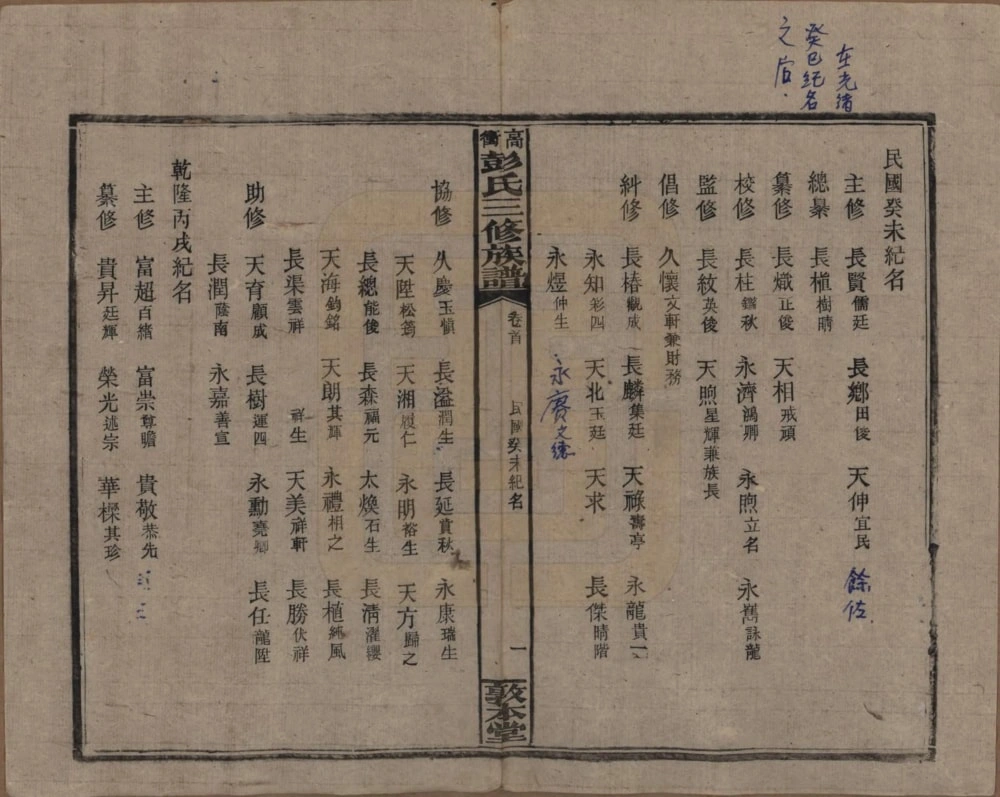 在光緒
癸巳紀名
之后.
民國癸未紀名
主修 長賢儒廷 長鄉田俊 天伸宜民 餘佐
總纂 長植樹晴
纂修 長熾正俊 天相戒頑
校修 長柱秋 永濟鴻卿 永煦立名 永舊詠龍
監修 長紋英俊 天煦星輝兼族長
倡修 久懷文軒兼財務
糾修 長椿觀成 長麟集廷 天祿壽亭 永龍貴一
永知彩四 天北玉廷 天求 長傑晴階
永煜仲生 永賡文德
高衝彭氏三修族譜 卷首 民國癸未紀名 一 敦本堂
協修 久慶玉愼 長溢潤生 長延賁秋 永康瑞生
天陞松筠 天湘履仁 永明裕生 天方歸之
長總能俊 長森福元 太煥石生 長清濯纓
天海鈞銘 天朗其輝 永禮相之 長植純風
長渠雲祥 祥生 天美祥軒 長勝伏祥
助修 天育顧成 長樹運四 永勳堯卿 長任龍陞
長潤蔭南 永嘉善宣
乾隆丙戌紀名
主修 富超百緒 富崇尊瞻 貴敬恭先
纂修 貴昇廷輝 榮光述宗 華樑其珍